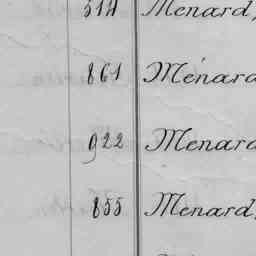 514 Menard,
861 Ménard
922 Menard
855 Menard,